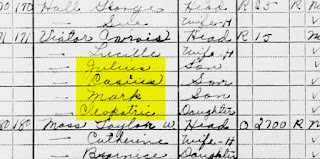 70 170 Hall George Head R 25 R
— Sue Wife-H
71 171 Viator Head R 15
— Lucille Wife-H
— Julius Son
— Casius Son
— Mark Son
— Cleopatric Daughter
Moss Taylor W. Head O 2700 R
— Catherine Wife-H
— Bearnice Daughter